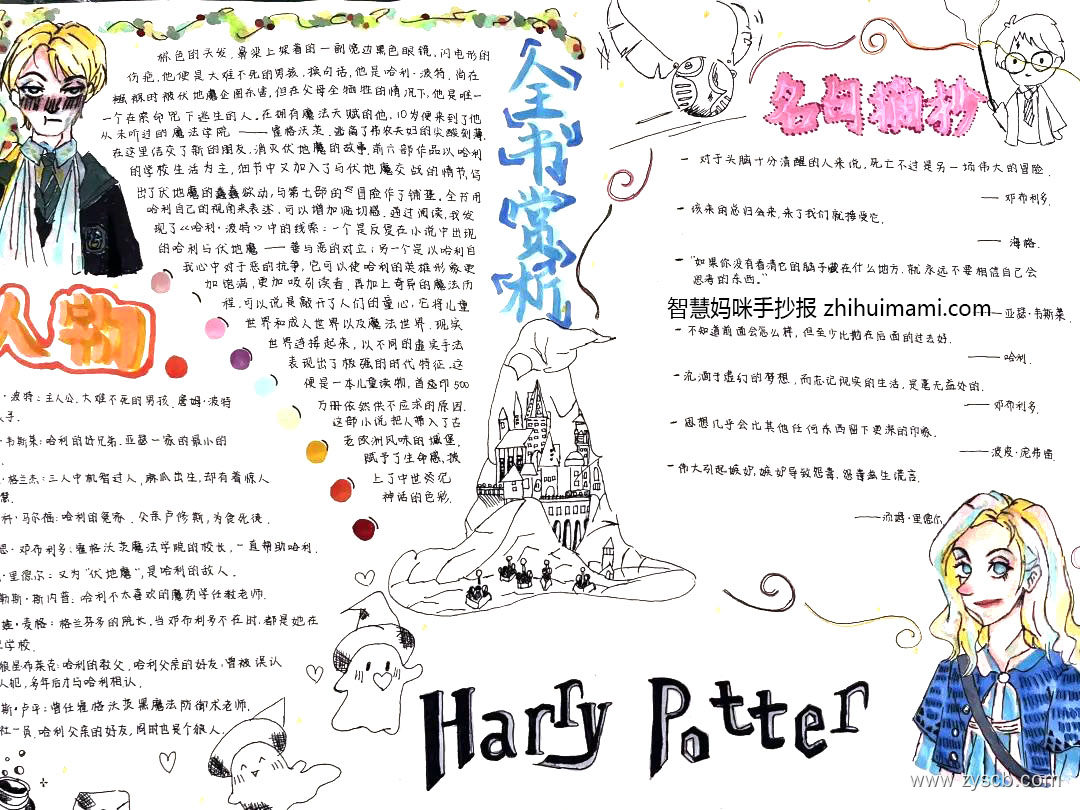 全书赏析
棕色的头发，鼻梁上架着的一副宽边黑色眼镜，闪电形的
伤疤，他便是大难不死的男孩，换句话，他是哈利·波特，尚在
襁褓时被伏地魔企图杀害，但在父母全牺牲的情况下，他是唯一
一个在索命咒下逃生的人。在拥有魔法天赋的他，10岁便来到了他
从未听过的魔法学院——霍格沃茨，逃离了弗农夫妇的尖酸刻薄，
在这里结交了新的朋友，消灭伏地魔的故事。前六部作品以哈利
的学校生活为主，细节中又加入了与伏地魔交战的情节，写
出了伏地魔的蠢蠢欲动，与第七部的冒险作了铺垫。全书用
哈利自己的视角来表述，可以增加逼切感。通过阅读，我发
现了《哈利·波特》中的线索：一个是反复在小说中出现
的哈利与伏地魔——善与恶的对立；另一个是以哈利自
我心中对于恶的抗争，它可以使哈利的英雄形象更
加饱满，更加吸引读者，再加上奇异的魔法历
程，可以说是敲开了人们的童心，它将儿童
世界和成人世界以及魔法世界，现实
世界连接起来，以不同的虚实手法
表现出了极强的时代特征。这
便是一本儿童读物，首签印500
万册依然供不应求的原因。
这部小说把人带入了古
老欧洲风味的城堡，
赋予了生命感，披
上了中世纪
神话的色彩。
人物
·波特：主人公，大难不死的男孩，詹姆·波特
·韦斯莱：哈利的好兄弟，亚瑟一家的最小的
·格兰杰：三人中机智过人，麻瓜出生，却有着惊人
科·马尔福：哈利的冤家，父亲卢修斯，为食死徒。
思·邓布利多：霍格沃茨魔法学院的校长，一直帮助哈利。
·里德尔：又为“伏地魔”，是哈利的敌人。
勒斯·斯内普：哈利不太喜欢的魔药学任教老师。
·麦格：格兰芬多的院长，当邓布利多不在时，都是她在
学校。
狼星布莱克：哈利的教父，哈利父亲的好友，曾被误认
人犯，多年后才与哈利相认。
斯·卢平：曾任霍格沃茨黑魔法防御术老师，
社一员，哈利父亲的好友，同时也是个狼人。
名句摘抄
一 对于头脑十分清醒的人来说，死亡不过是另一场伟大的冒险。
——邓布利多。
一 该来的总归会来，来了我们就接受它。
——海格。
一 “如果你没有看清它的脑子藏在什么地方，就永远不要相信自己会
思考的东西。”
——亚瑟·韦斯莱。
智慧妈咪手抄报 zhihuimami.com
一 不知道前面会怎么样，但至少比躺在后面的过去好。
——哈利。
一 沉湎于虚幻的梦想，而忘记现实的生活，是毫无益处的。
——邓布利多。
一 思想几乎会比其他任何东西留下更深的印象。
——波皮·庞弗雷
一 伟大引起嫉妒，嫉妒导致怨毒，怨毒滋生谎言。
——汤姆·里德尔
Harry Potter
www.zyscb.com